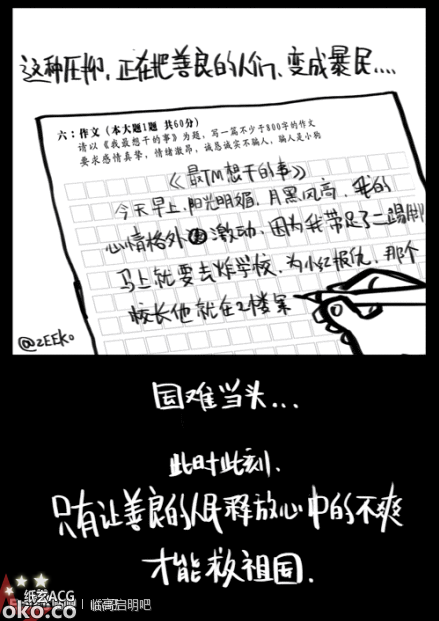 这种压抑，正在把善良的人们，变成暴民....
六：作文（本大题1题 共60分）
请以《我最想干的事》为题，写一篇不少于800字的作文
要求感情真挚，情绪激昂，诚恳诚实不骗人，骗人是小狗
《最TM想干的事》
今天早上，阳光明媚，月黑风高，我的
心情格外激动，因为我带足了二踢脚
马上就要去炸学校，为小红报仇，那个
校长他就在2楼第
@ZEEKO
国难当头...
此时此刻，
只有让善良的人民释放心中的不爽
才能救祖国.
纸艺ACG
临高启明吧
oko.co